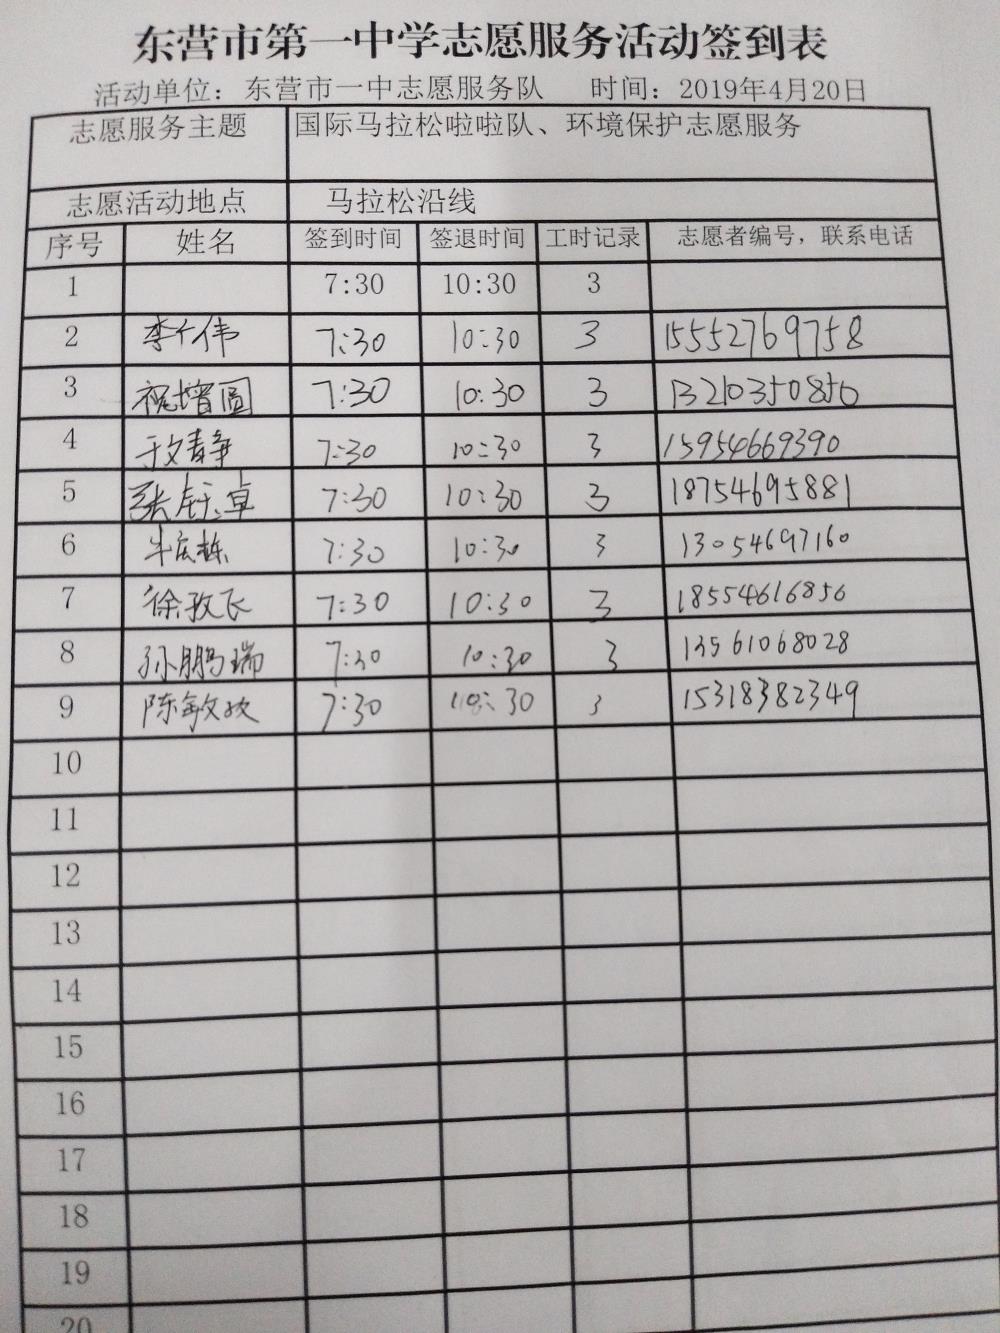 东营市第一中学志愿服务活动签到表
活动单位：东营市一中志愿服务队 时间：2019年4月20日
志愿服务主题 国际马拉松啦啦队、环境保护志愿服务
志愿活动地点 马拉松沿线
序号 姓名 签到时间 签退时间 工时记录 志愿者编号，联系电话
1 7:30 10:30 3
2 李仁伟 7:30 10:30 3 15552769758
3 祝增圆 7:30 10:30 3 13210350850
4 于文静 7:30 10:30 3 15954669390
5 张钰卓 7:30 10:30 3 18754695881
6 7:30 10:30 3 13054697160
7 徐孜飞 7:30 10:30 3 18554616856
8 孙鹏瑞 7:30 10:30 3 13561068028
9 陈敏 7:30 10:30 3 15318382349
10
11
12
13
14
15
16
17
18
19
20